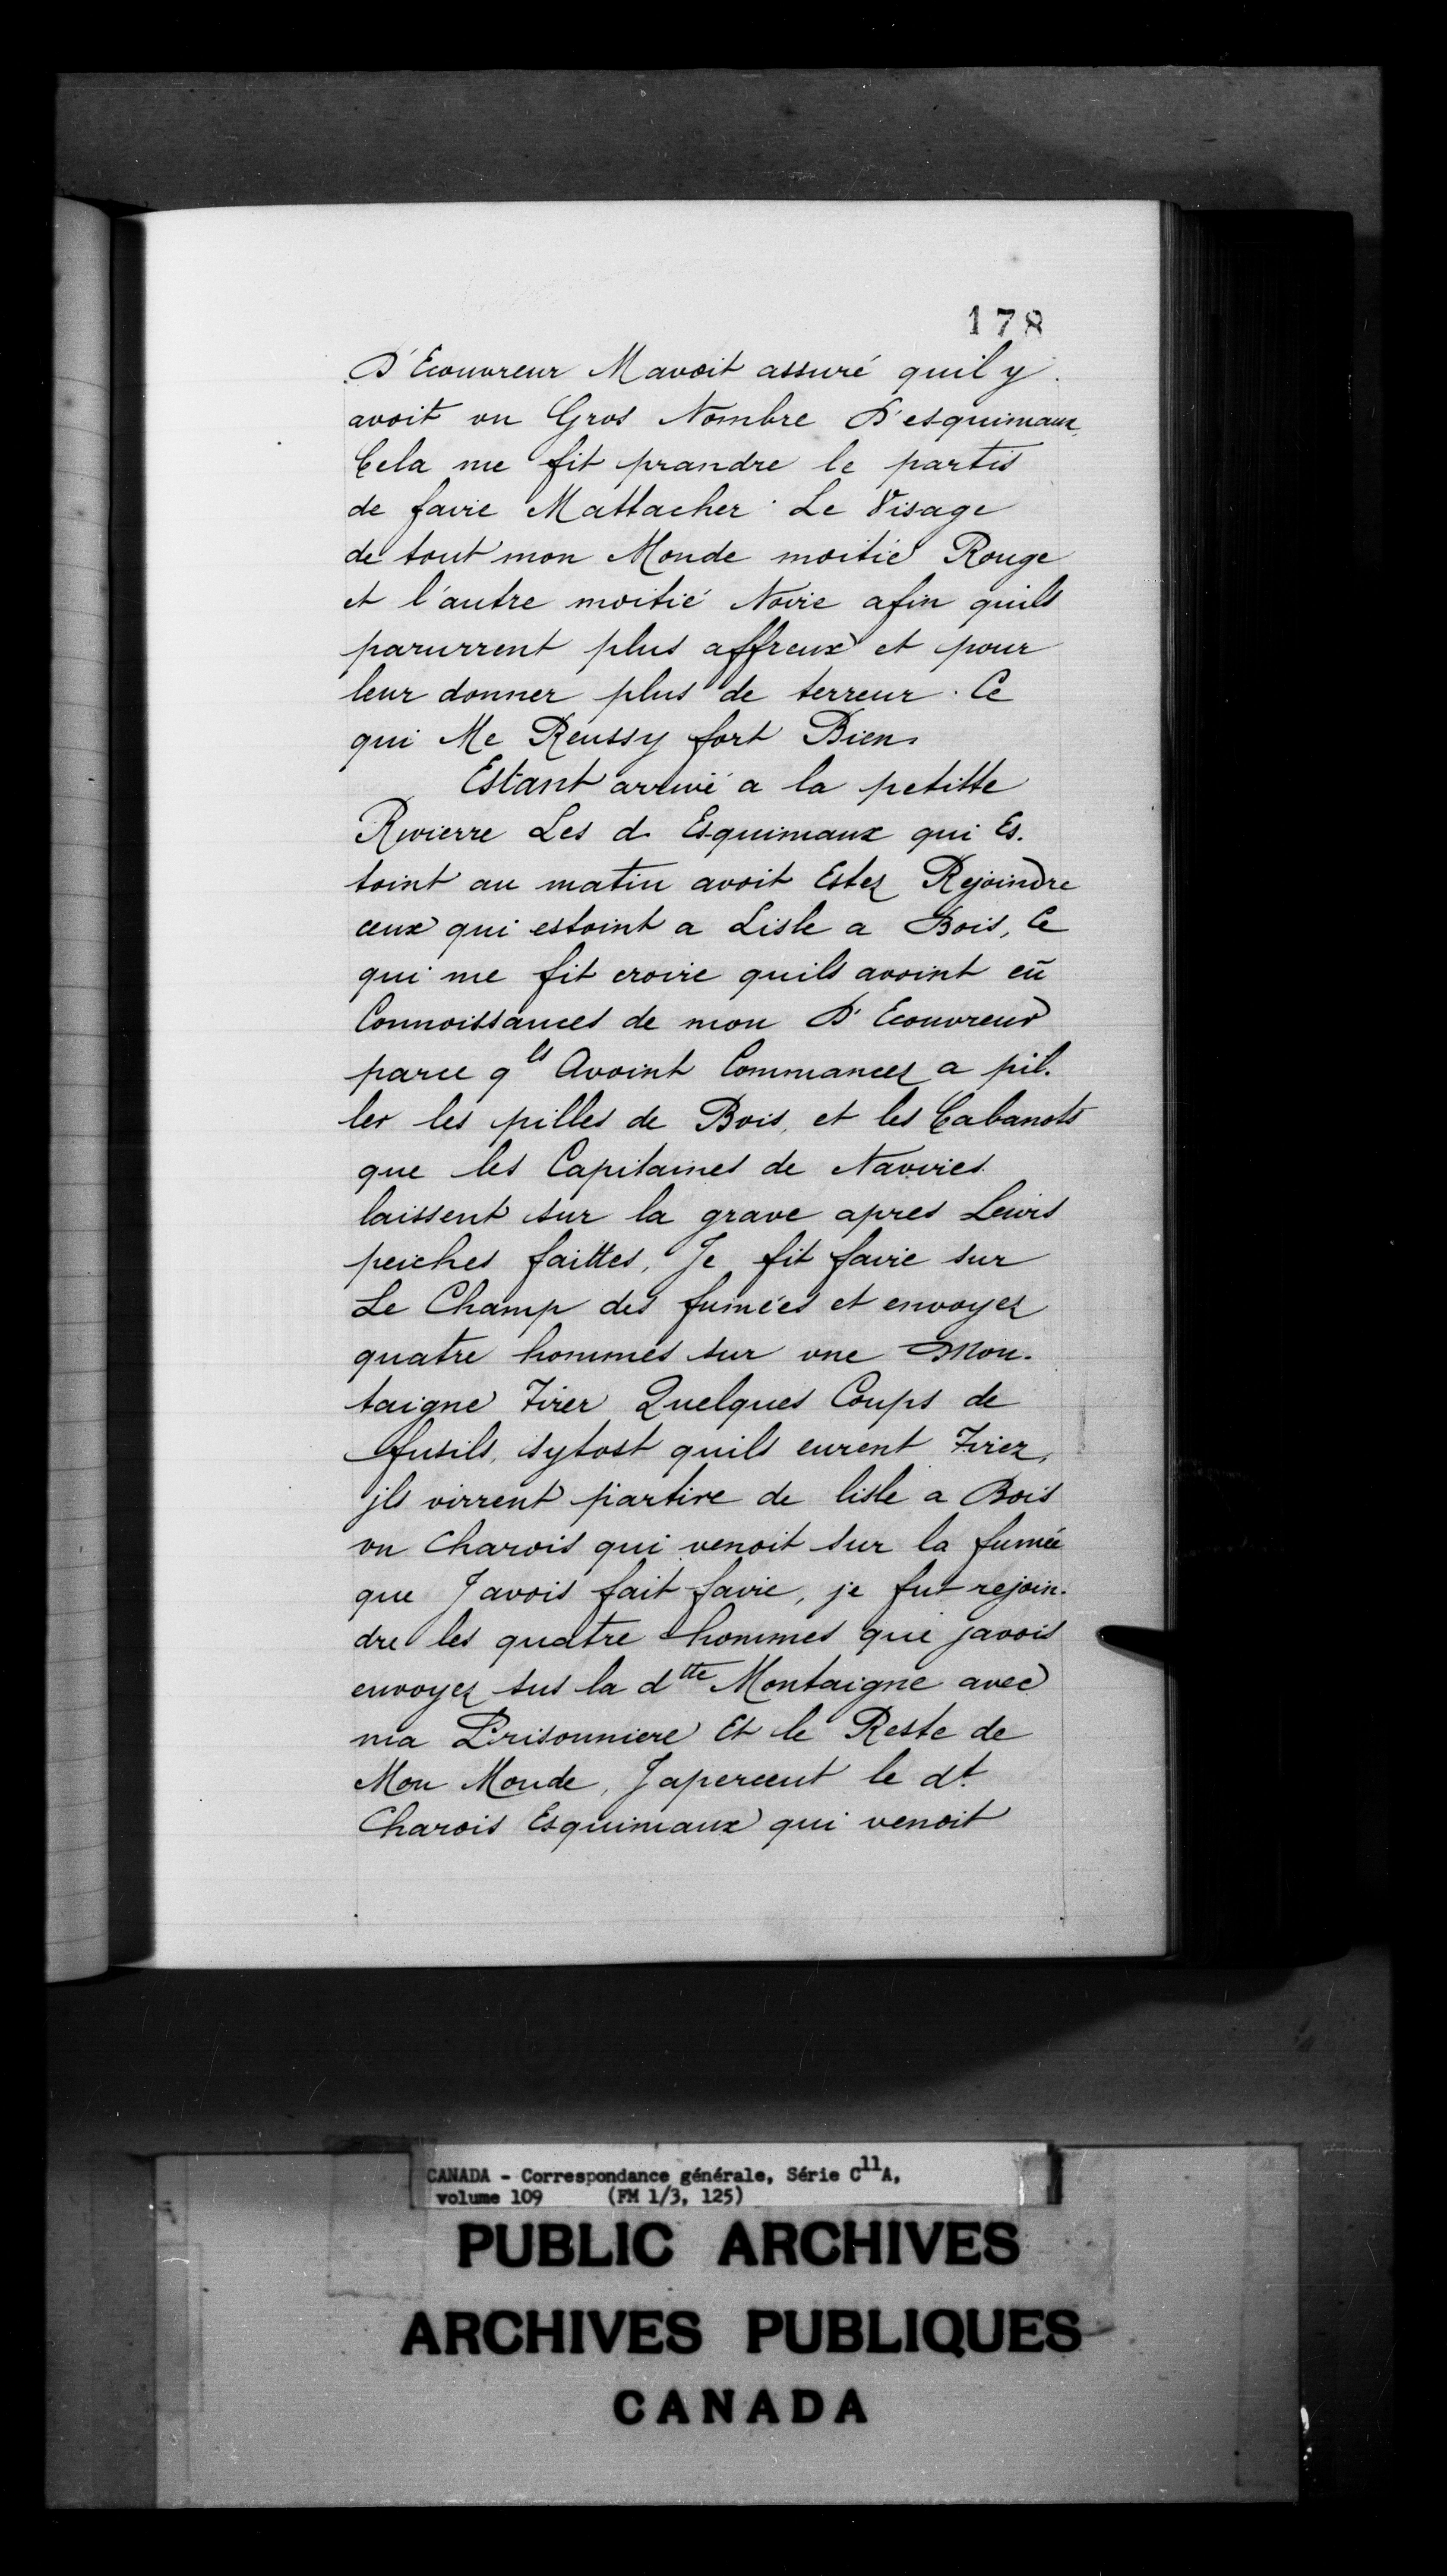 178
D'Ecouvreur Mavoit assuré quil y
avoit un Gros Nombre D'esquimaux,
Cela me fit prandre le partis
de faire Mattacher Le Visage
de tout mon Monde moitié Rouge
et l'autre moitié Noire afin quils
parurrent plus affreux et pour
leur donner plus de terreur. Ce
qui Me Reussy fort Bien.
Estant arrivé a la petitte
Rivierre Les d. Esquimaux qui Es-
toint au matin avoit Estez Rejoindre
ceux qui estoint a Lisle a Bois, Ce
qui me fit croire quils avoint eü
Connoissances de mon D'Ecouvreur
parce qls Avoint Commancez a pil-
ler les pilles de Bois, et les Cabanots
que les Capitaines de Navires
laissent sur la grave apres Leurs
peiches faittes, Je fit faire sur
Le Champ des fumées et envoyez
quatre hommes sur une Mon-
taigne Tirer Quelques Coups de
fusils, sytost quils eurent Tirez,
jls virrent partire de lisle a Bois
un Charois qui venoit sur la fumée
que J'avois fait faire, je fut rejoin-
dre les quatre hommes que javois
envoyez sus la dtte Montaigne avec
ma Prisonniere Et le Reste de
Mon Monde, J'aperceut le dt
Charois Esquimaux qui venoit
CANADA - Correspondance générale, Série C11A,
volume 109 (FM 1/3, 125)
PUBLIC ARCHIVES
ARCHIVES PUBLIQUES
CANADA